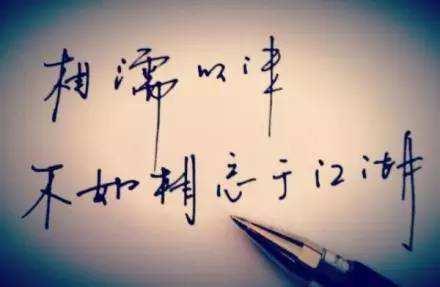 相濡以津
不如相忘于江湖